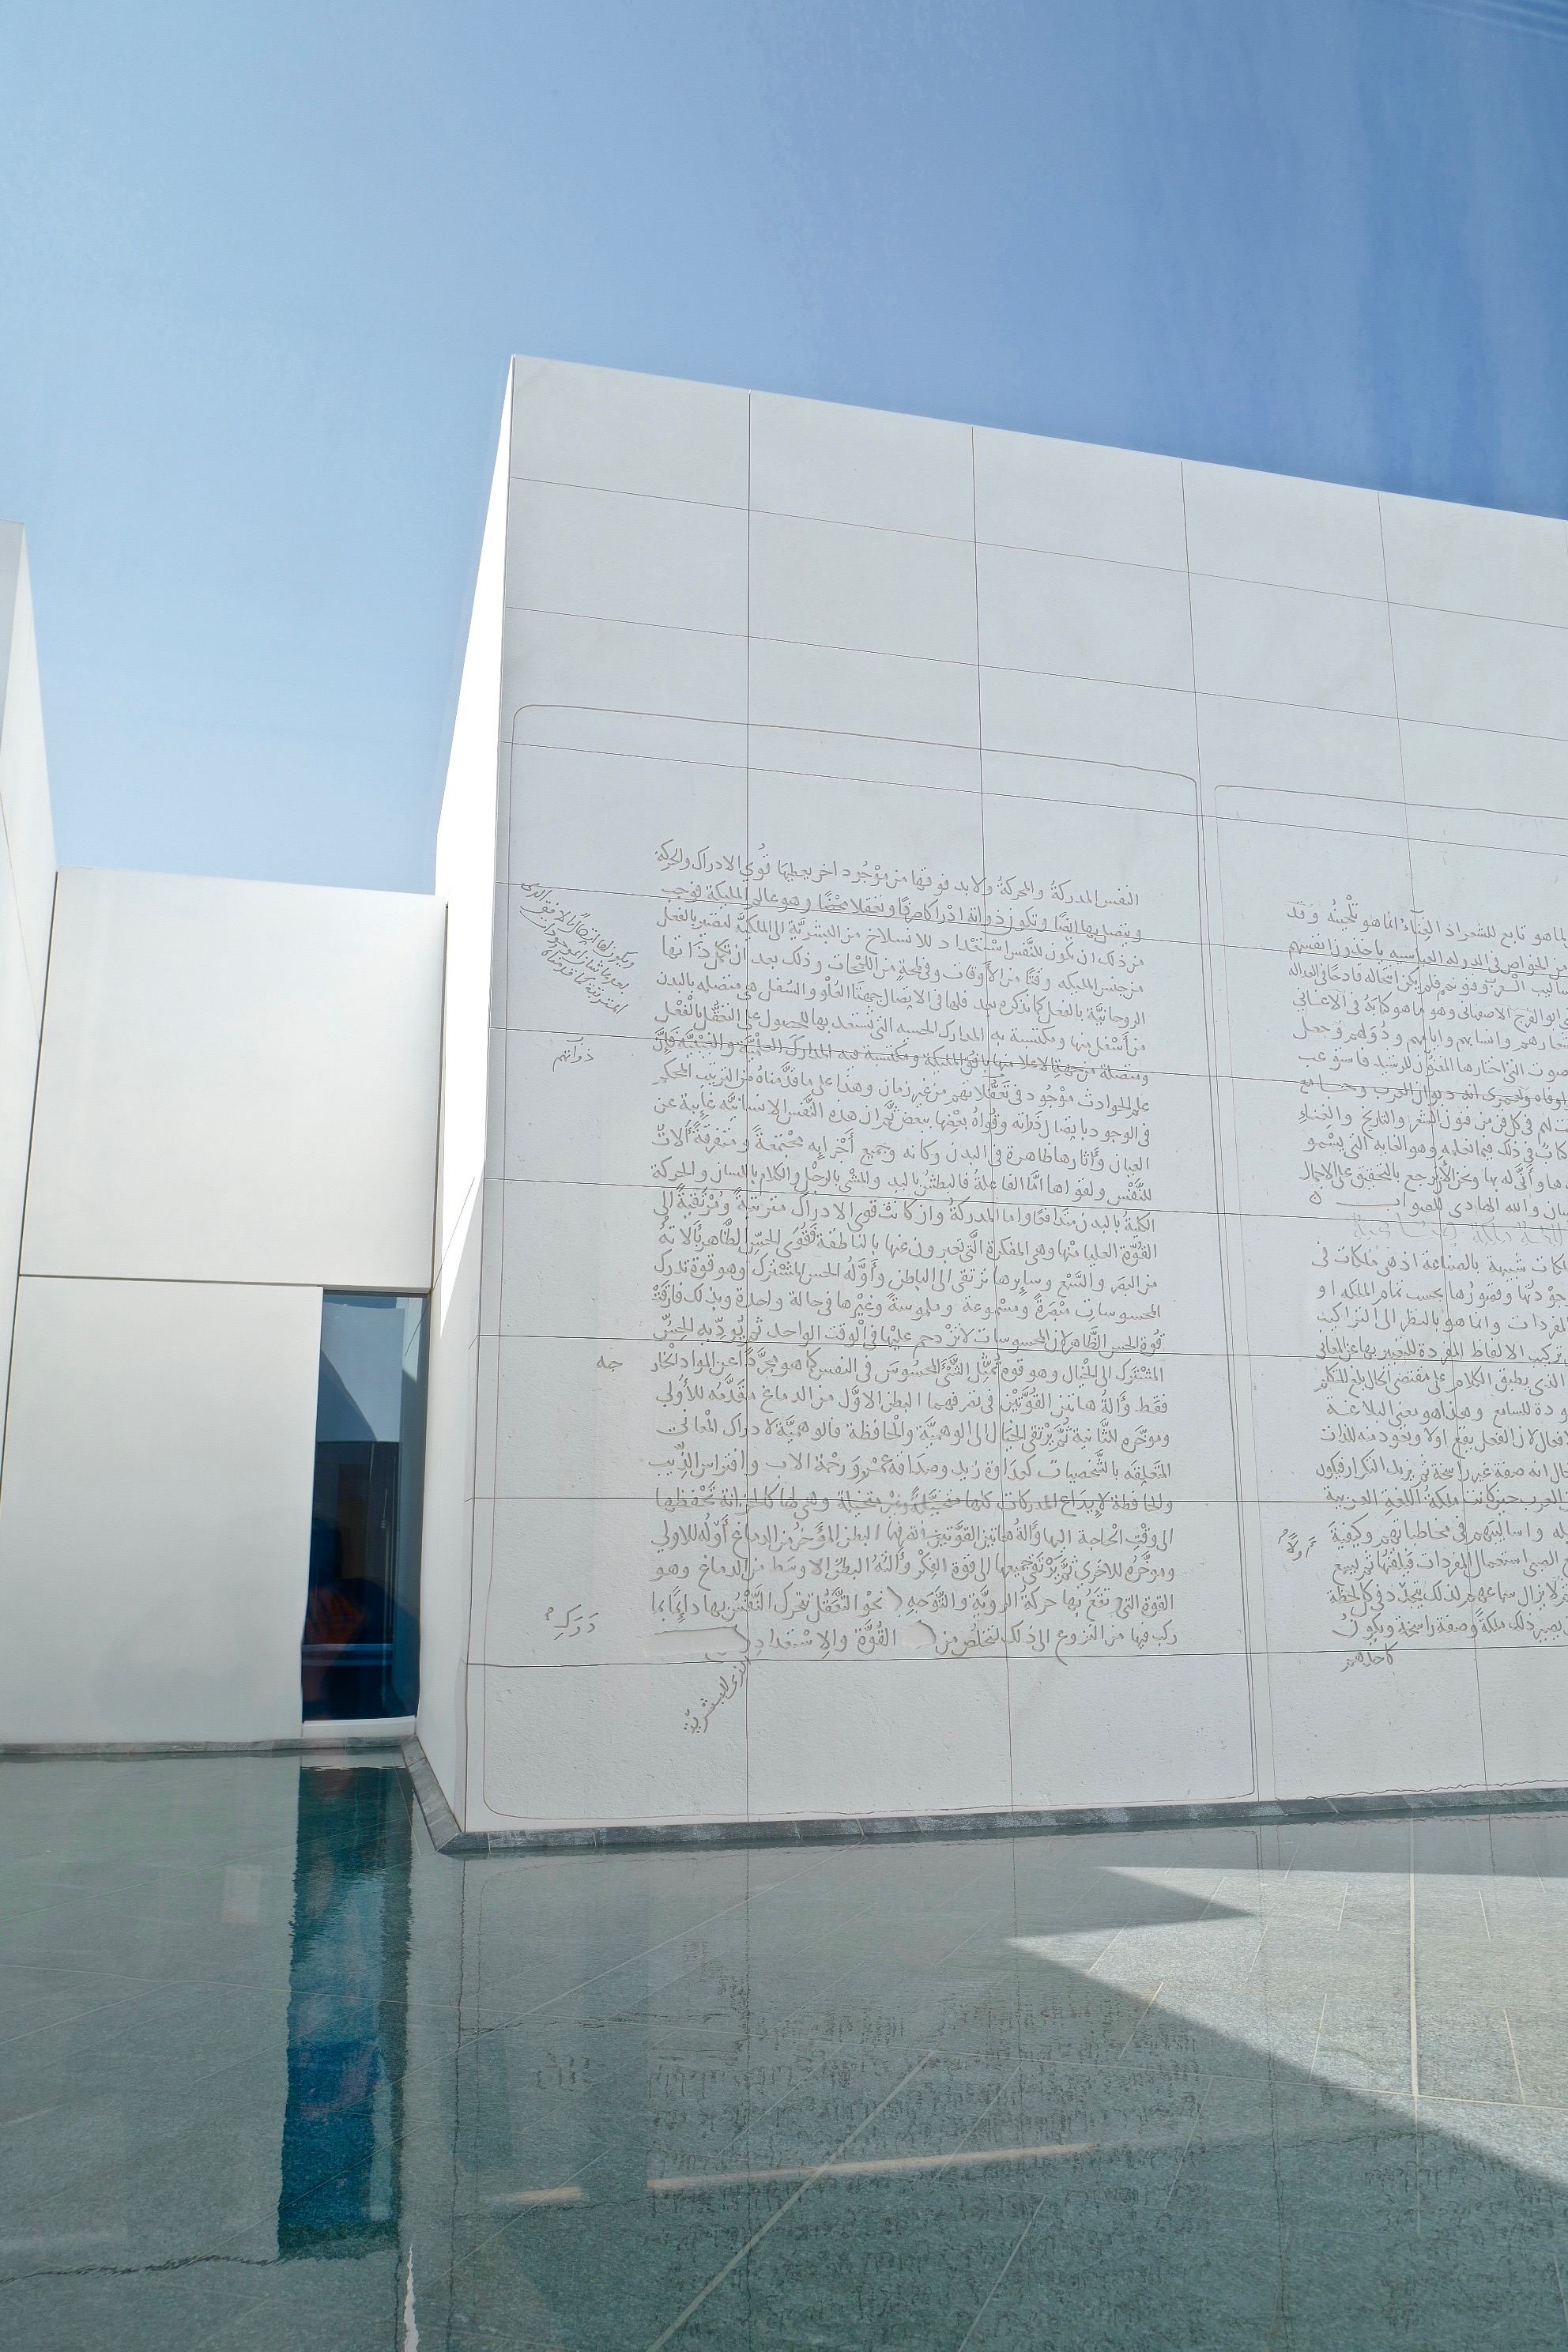 النفس المدركةُ والمحركةُ ولا بد فوقها من موْجُود اخر يعطيهَا قُوي الادراك والحركة
ويتصل بها ايضًا وتكون ذواته ادْراكا صرفًا وتعقلا محْضًا وهو عالم المليكة فوجب
من ذلك ان يكون للنَّفس اسْتعْداد للانسلاخ من البشريَّة الى الملكيَّة لتصير بالفعل
من جنس المليكه وقتًا من الأوقات وفي لمحةٍ من اللَّمحات وذلك بعد ان تكمل ذاتها
الروحانيَّة بالفعل كما نذكره بعد فلها في الاتصال جهتا العُلْو والسُفل هي متصله بالبدن
من أسْفل منها ومكتسبة به المدارك الحسيه التي تستعد بها للحصول على التعَّقل بالْفعْل
ومتصلة من جهةِ الاعلا منها بافق المليكة ومكتسبة فيه المدارك العلْميَّة والغيْبيَّة فإنَّ
علم الحوادث موْجُود في تعَقّلاتهم من غير زمان وهذا على ما قدَّمناهُ من الترتيب المحكم
في الوجود باتصال ذَواته وقُواهُ بعْضِها ببعض ثم ان هذه النَّفْس الانسانيَّه غايبة عن
العيان وأثارها ظاهرة في البدن وكانه وجميع أجْزايه مجْتمعةً ومتفرقةً ألاتٌ
للنَّفْس ولقواها امَّا الفاعلةُ فالبطش باليد والمشْي بالرجْل والكلام باللسان والحركة
الكليةُ بالبدن متدافعًا واما المدركةُ وان كانتْ قوي الادراك مترتبةً ومُرْتقيةً الى
القُوّة العليا منْها وهي المفكرة الَّتي يَعبر ون عنها بالناطقة فَقُوَي الحسِّ الظَّاهر بأَلاتهُ
من البصَر والسَّمْع وسايرها ترتقي الى الباطن وأَوَّلُهُ الحس المشْترك وهو قوة تدرك
المحسوسات مبْصَرةً ومسْموعة وملموسةً وغيْرها في حالة واحدة وبذلك فارقتْ
قُوة الحس الظَّاهر لان المحسوسات لا تزْدحم عليْها في الْوقت الواحد ثم يُودِّيه الحسِّ
المشْترك الى الخْيال وهو قوة تُمثِّل الشَّئَ المحْسُوسَ في النفس كما هو مجرَّدًا عن المواد الخارجه
فقط وَأَالةُ هاتين القُوَّتيْن في تصرفهما البطن الاوَّل من الدماغ مقدَّمُه للأُولي
وموَخَّره للثَّانية ثُمَّ يرْتقي الخيَال الى الوهميَّة والحْافظة فالوهميَّة لادراك المْعاني
المتَعلقه بالشَّخصيات كعداوة زيد وصداقة عمْرٍو ورحْمة الاب وافتراس الذِّيب
والحافظة لإيدَاع المدركات كلها متخيَّلةً وغيْر متخيلة وهي لها كالخزانة تحْفظها
الى وقْتِ الحْاجة اليها وَأَالةُ هاتيْن القوَّتين في تصرفها البطن المؤَخر من الدماغ أَوّلُه للاولي
وموخَّرُه للاخري ثمَّ ترْتقي جميعها الى قوة الفِكْر وَأَالتُهُ البطنُ الاوسَط من الدماغ وهو
القوة التي تقعُ بها حركةُ الرويَّة والتَّوَجهِ نحْو التَّعَقُل تتحرك النَّفْس بها دايمًا بما
ركب فيها من النزوع الى ذلك لتخلُص من القُوَّة والاِسْتعدادِ
الذي للبشريَّة
ويكون لها اتصالٌ بالافق الذي
بعدها شان الموجودات
المترتبة كما قدمناه
ذواتهم
دَرَكِ
انما هو تابع للشعر اذ الغِنَاء انما هو تلْحينُه وقد
من الخواص في الدوله العباسيه ياخذون انفسهم
اساليب الْعرب وفنونهم فلم يكن انتحاله قادحًا في العداله
ابو الفرج الاصبهاني وهو ما هو كتابهُ في الاغاني
اشعارهم وانسابهم وايامهم ودُولهم وَجعل
صوت التي اختارها المغنُّون للرشيد فاستوعب
اوفاه ولعمرى انه ديوان العرب وجامع
لهم في كل فن من فنون الشعر والتاريخ والغِناء
كتابٌ في ذلك فيما نعلمه وهو الغايه التي يسْمو
وأنَّي له بها ونحن الأن نرجع بالتحقيق على الاجمال
والله الهادي للصواب ٥
ملكات شبيهة بالصناعة اذ هي مَلكات في
جوْدتُها وقصورُها بحسب تمام الملكه او
المفردات وانما هو بالنظر الى التراكيب
تركيب الالفاظ المفردة للتعبير بها عن المعاني
الذي يطبق الكلام على مقتضي الحال بلغ المتكلم
للسامع وهذا هو معني البلاغة
الافعال لان الفعل يقع اولا وتعود منه للذات
انه صفة غير راسخة ثم يزيد التكرار فيكون
العرب حين كانت ملكةُ اللغةِ العربية
واساليبَهم في مخاطباتهم وكيفيةَ
الصبي استعمال المفردات فيلقنُها ثم يسمع
لا يزال سماعهم لذلك يتجدّد في كل لحظة
يصير ذلك ملكةً وصفة راسخة ويكونُ
كاحدهم
أوّلًا